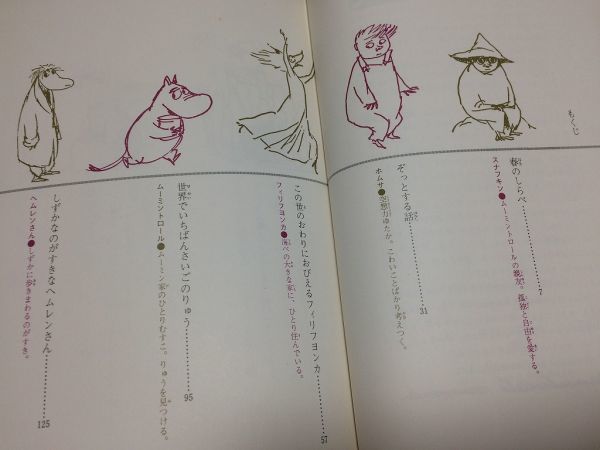 もくじ
春のしらべ………7
スナフキン●ムーミントロールの親友。孤独と自由を愛する。
ぞっとする話………31
ホムサ●空想力ゆたか。こわいことばかり考えつく。
この世のおわりにおびえるフィリフヨンカ………57
フィリフヨンカ●海べの大きな家に、ひとり住んでいる。
世界でいちばんさいごのりゅう………95
ムーミントロール●ムーミン家のひとりむすこ。りゅうを見つける。
しずかなのがすきなヘムレンさん………125
ヘムレンさん●しずかに歩きまわるのがすき。